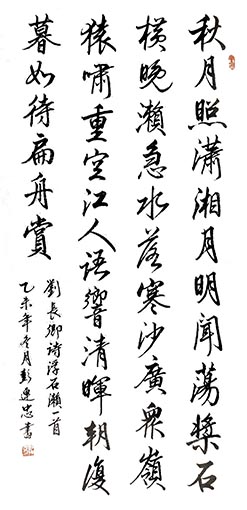 秋月照瀟湘月明聞蕩槳石
橫晚瀨急水落寒沙廣衆嶺
猿嘯重空江人語響清暉朝復
暮如待扁舟賞
劉長卿詩浮石瀨一首
乙未年冬月彭忠書